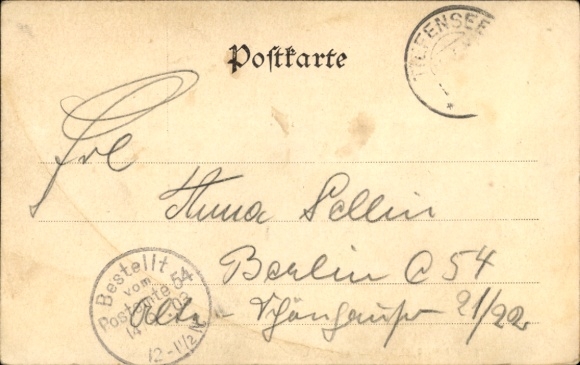 Postkarte
TIEFENSEE
Frl
Anna Sellin
Berlin C 54
Alte-Schönhauser 21/22
Bestellt
vom
Postamte 54
12-1½N